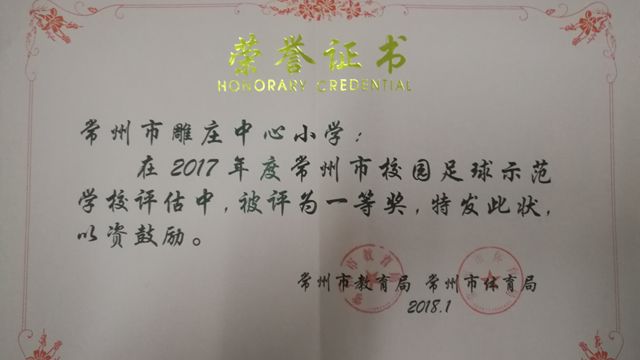 荣誉证书
HONORARY CREDENTIAL
常州市雕庄中心小学：
在2017年度常州市校园足球示范
学校评估中，被评为一等奖，特发此状，
以资鼓励。
常州市教育局 常州市体育局
2018.1